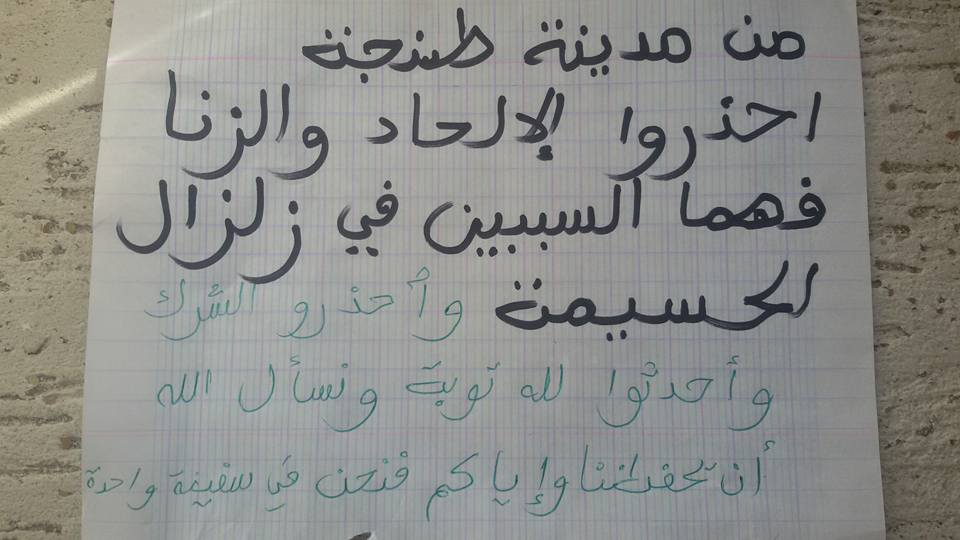 من مدينة طنجة
احذروا الإلحاد والزنا
فهما السببين في زلزال
الحسيمة وأحذرو الشرك
وأحدثوا لله توبة ونسأل الله
أن تحفظنا وإياكم فنحن في سفينة واحدة